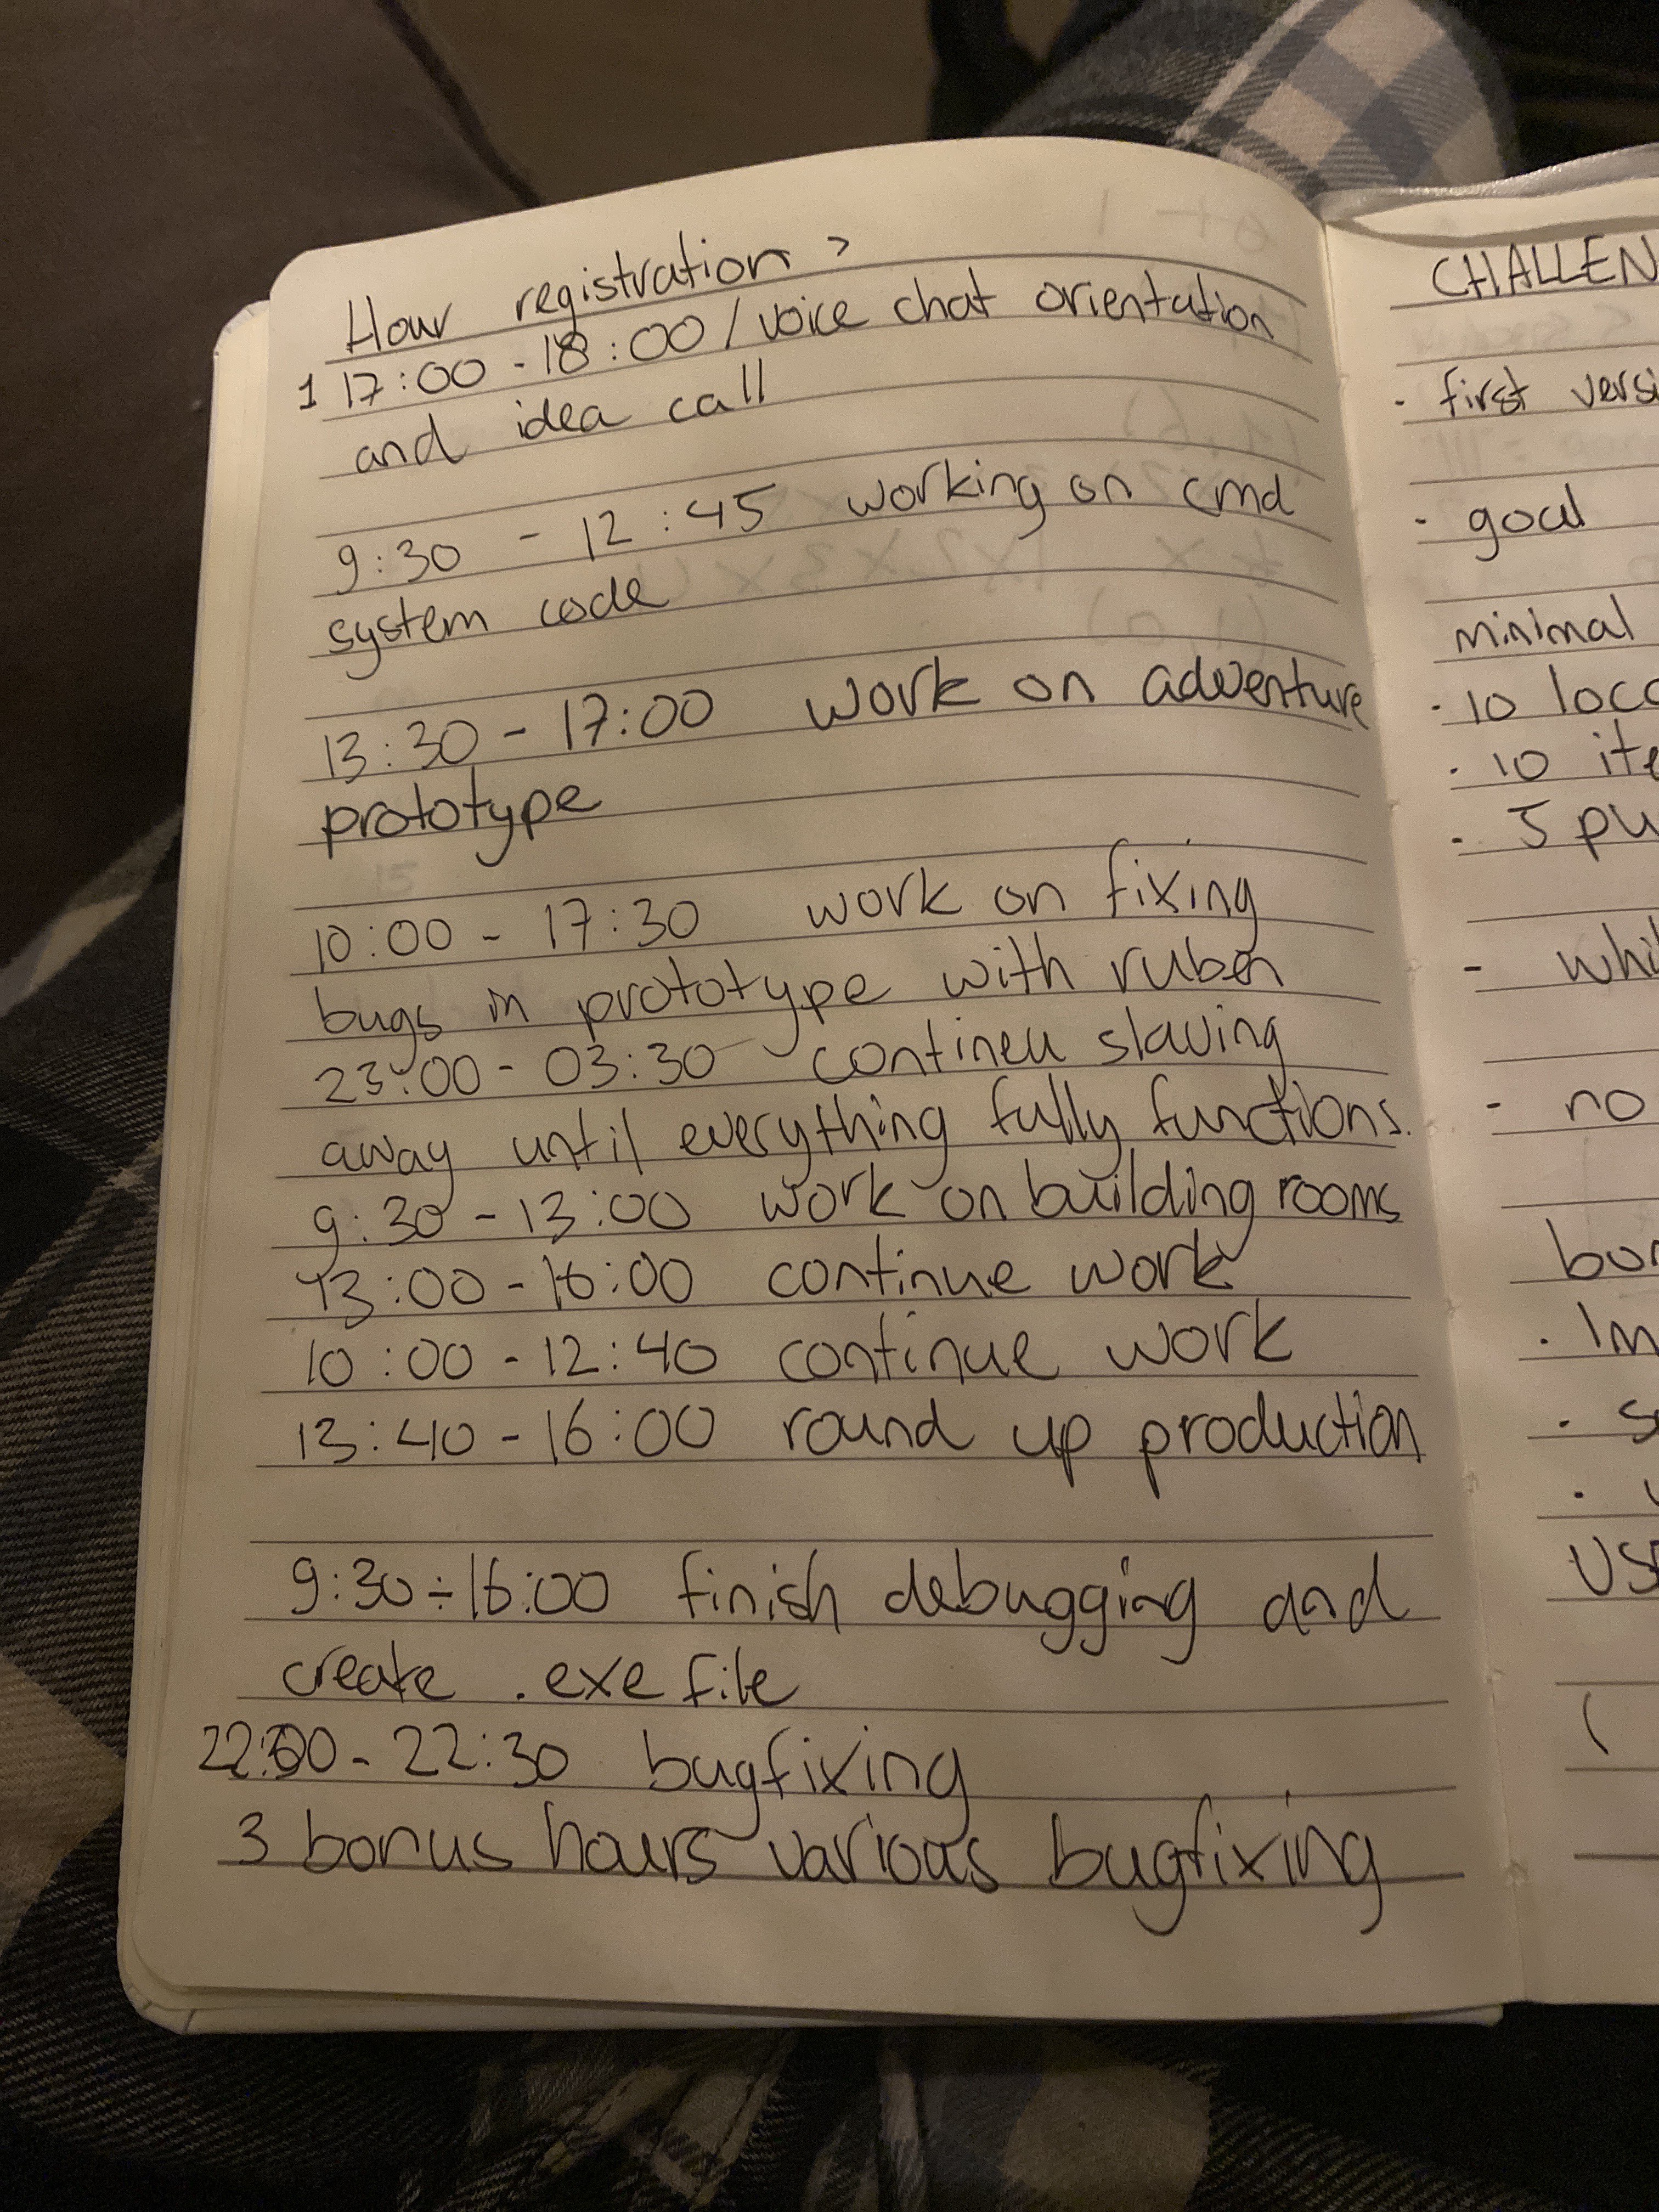 Hour registration :
1 17:00 - 18:00 / voice chat orientation
and idea call
9:30 - 12:45 working on cmd
system code
13:30 - 17:00 work on adventure
prototype
10:00 - 17:30 work on fixing
bugs in prototype with ruben
23:00 - 03:30 contineu slaving
away until everything fully functions.
9:30 - 13:00 work on building rooms
13:00 - 16:00 continue work
10:00 - 12:40 continue work
13:40 - 16:00 round up production
9:30 - 16:00 finish debugging and
create .exe file
- 22:30 bugfixing
3 bonus hours various bugfixing
CHALLEN
- first versi
- goal
minimal
- 10 loca
- 10 ite
- 5 pu
- whi
- no
bon
- Im
- s
US